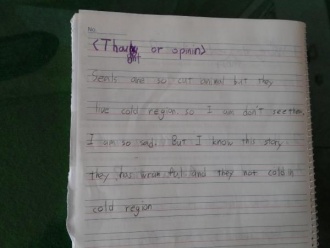 No.
<Thought or opinin>
Seals are so cut animal but they
live cold region. so I am don't see them.
I am so sad. But I know this story
they has wram fat and they not cold in
cold region